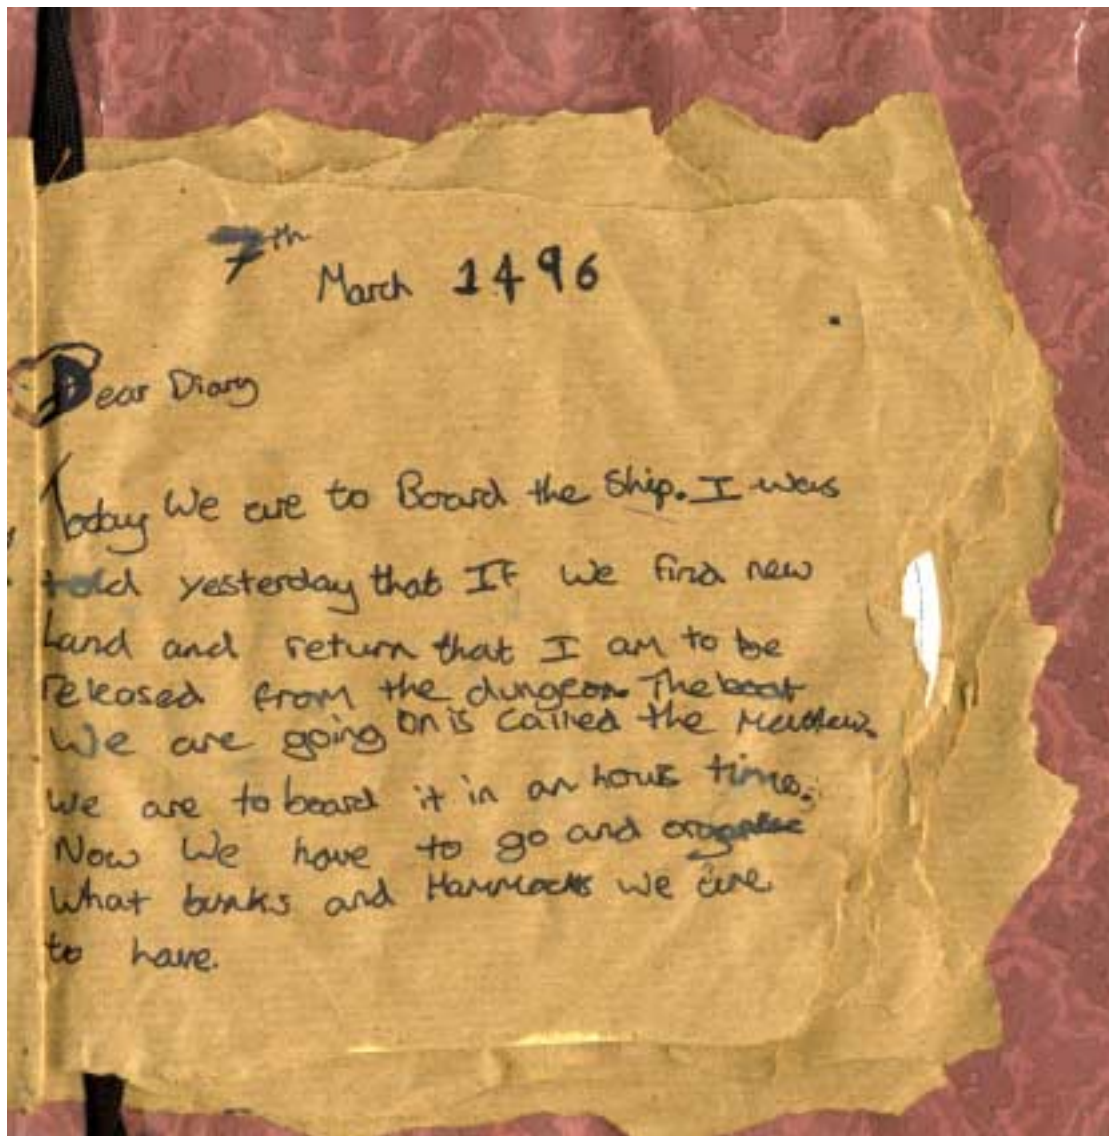 7th
March 1496
Dear Diary
Today We are to Board the Ship. I was
told yesterday that If we find new
Land and return that I am to be
released from the dungeon. The boat
We are going on is called the Matthew.
We are to board it in an hours time.
Now We have to go and organise
What bunks and Hammocks we are
to have.